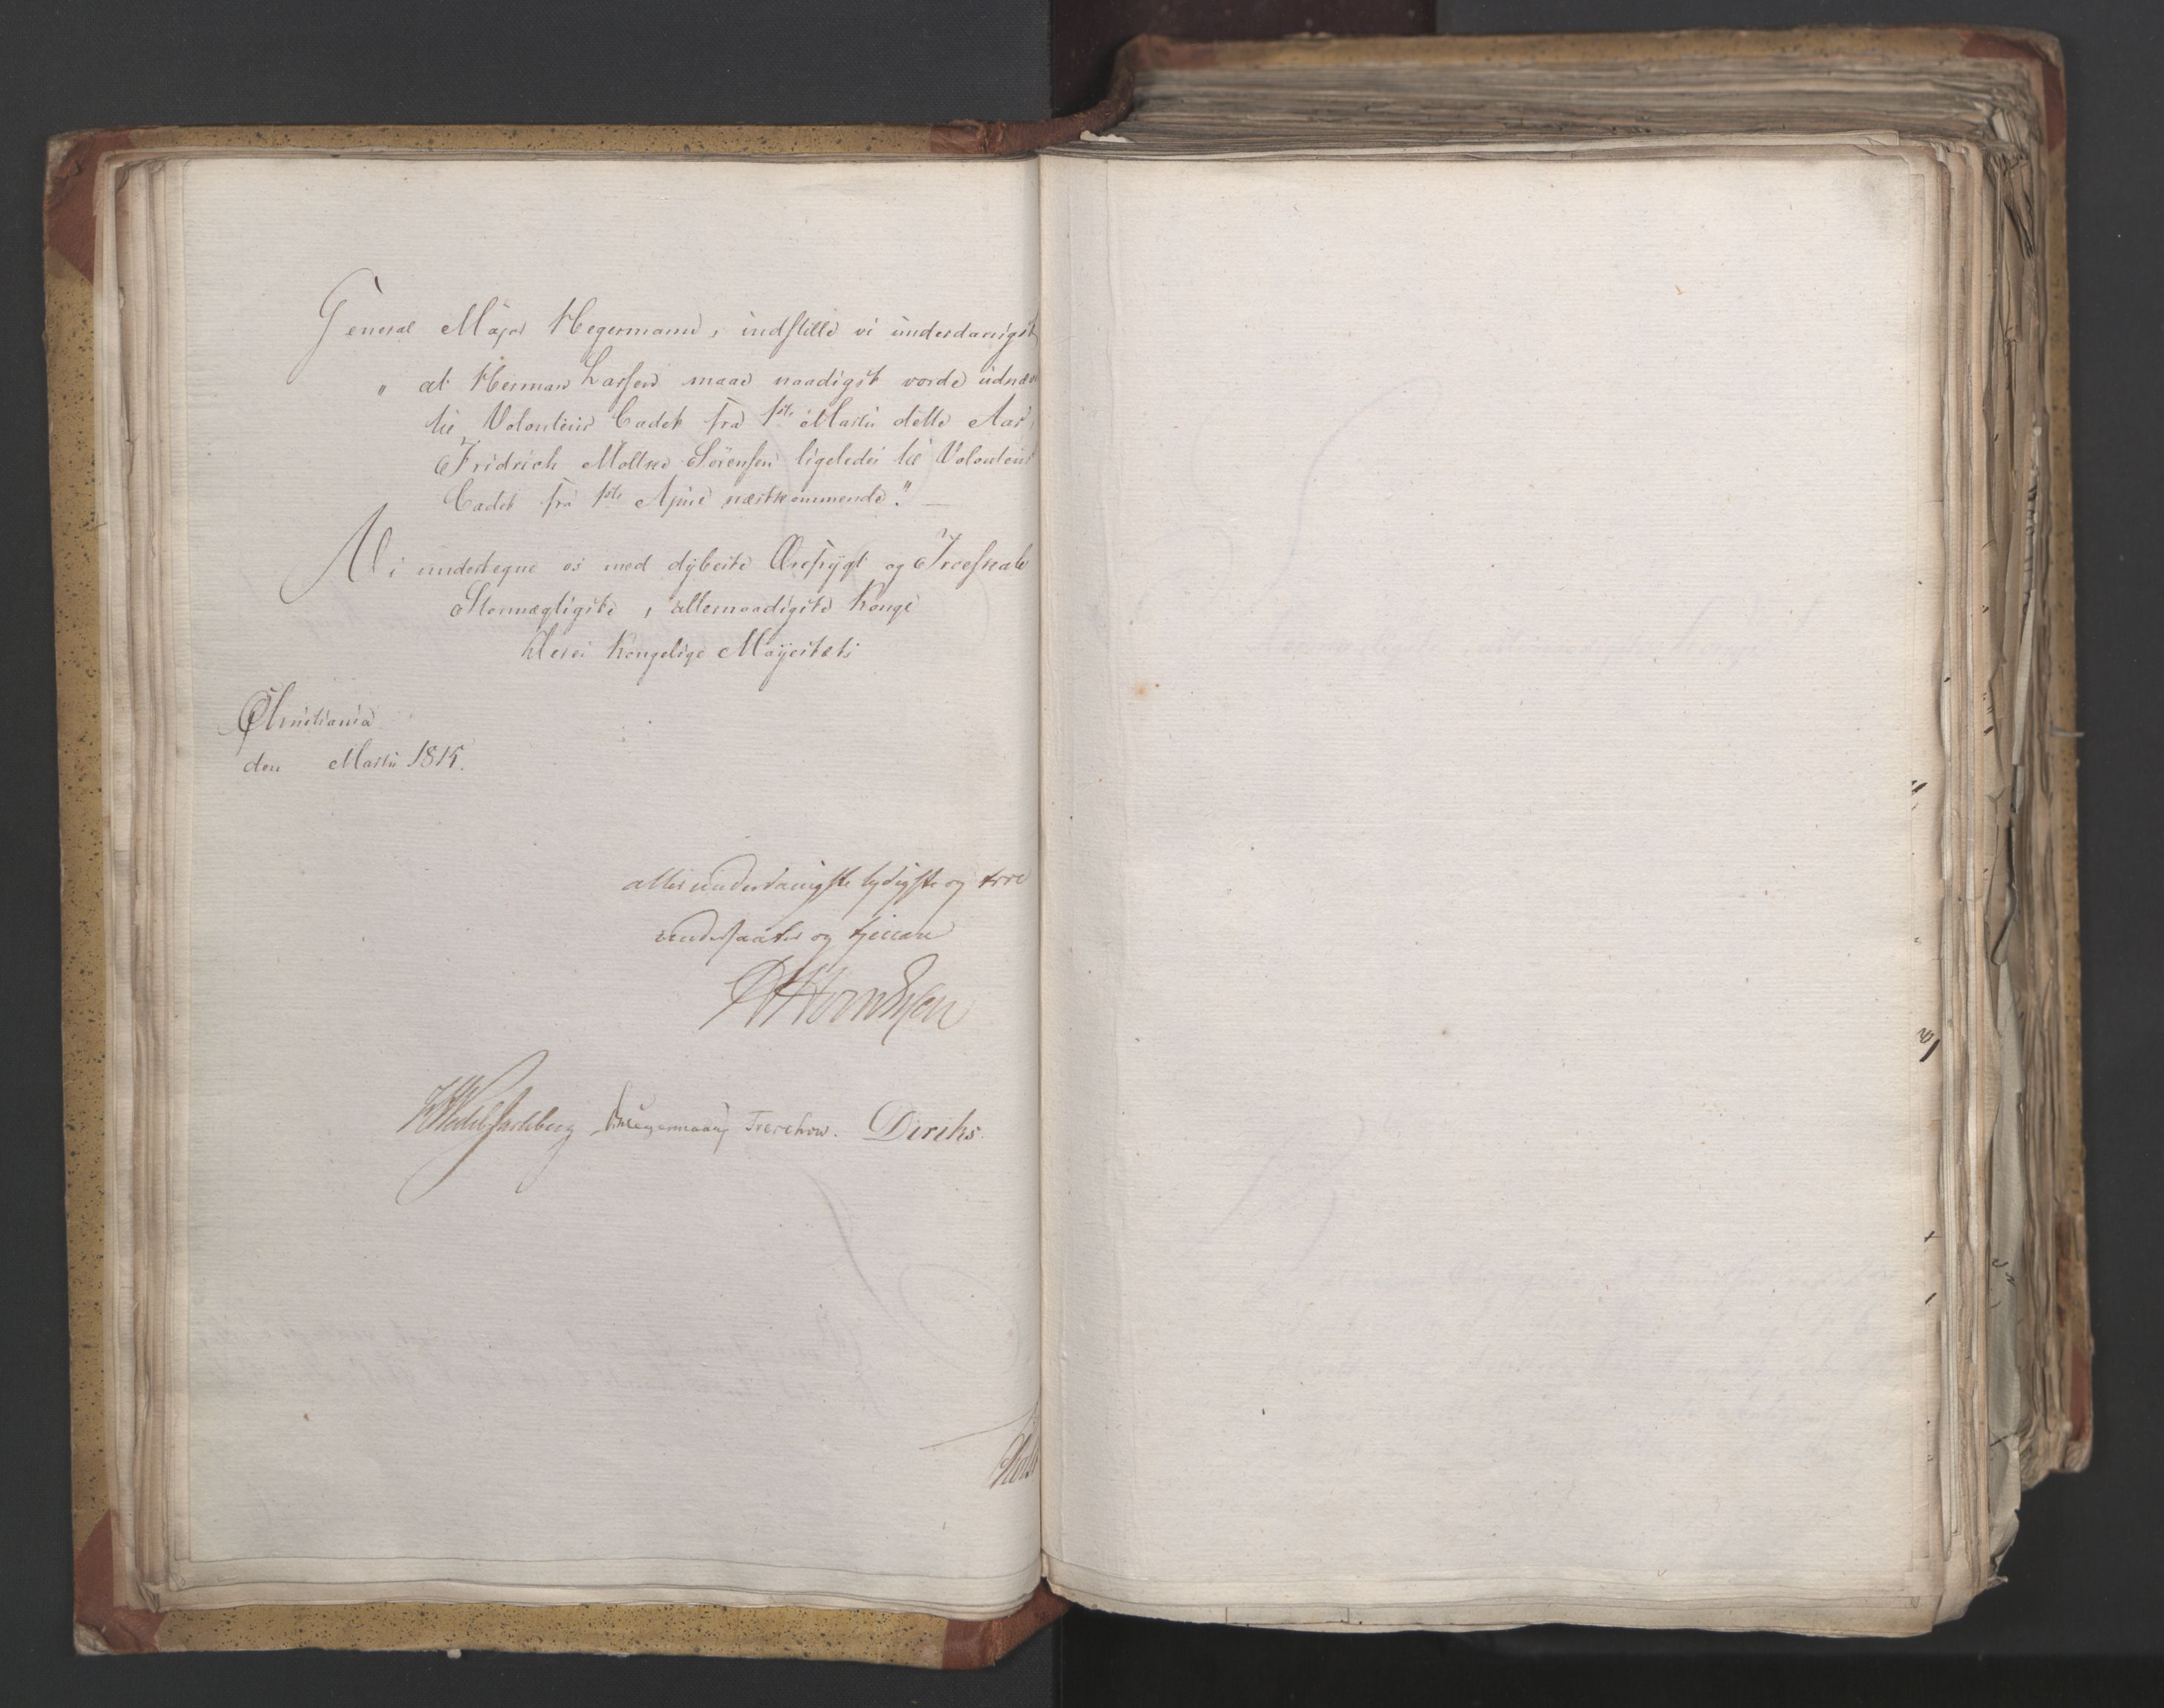 General Major Hegermann, indstille vi underdanigst
" at Herman Larsen maae naadigst vorde udnæv
til Volontair Cadet fra 1ste Martii dette Aar,
Fridrich Moltke Sørensen ligeledes til Volontair
Cadet fra 1ste April næstkommende". —
Vi undertegne os med dybeste Ærefrygt og Troeskab
Stormægtigste, allernaadigste Konge
Deres Kongelige Mayestæts
Christiania
den Martii 1815.
allerunderdanigste lydigste og troe
undersaatter og tjenere
MSommerhjelm
HWedel Jarlsberg DHegermann Treschow. Diriks.
Holst